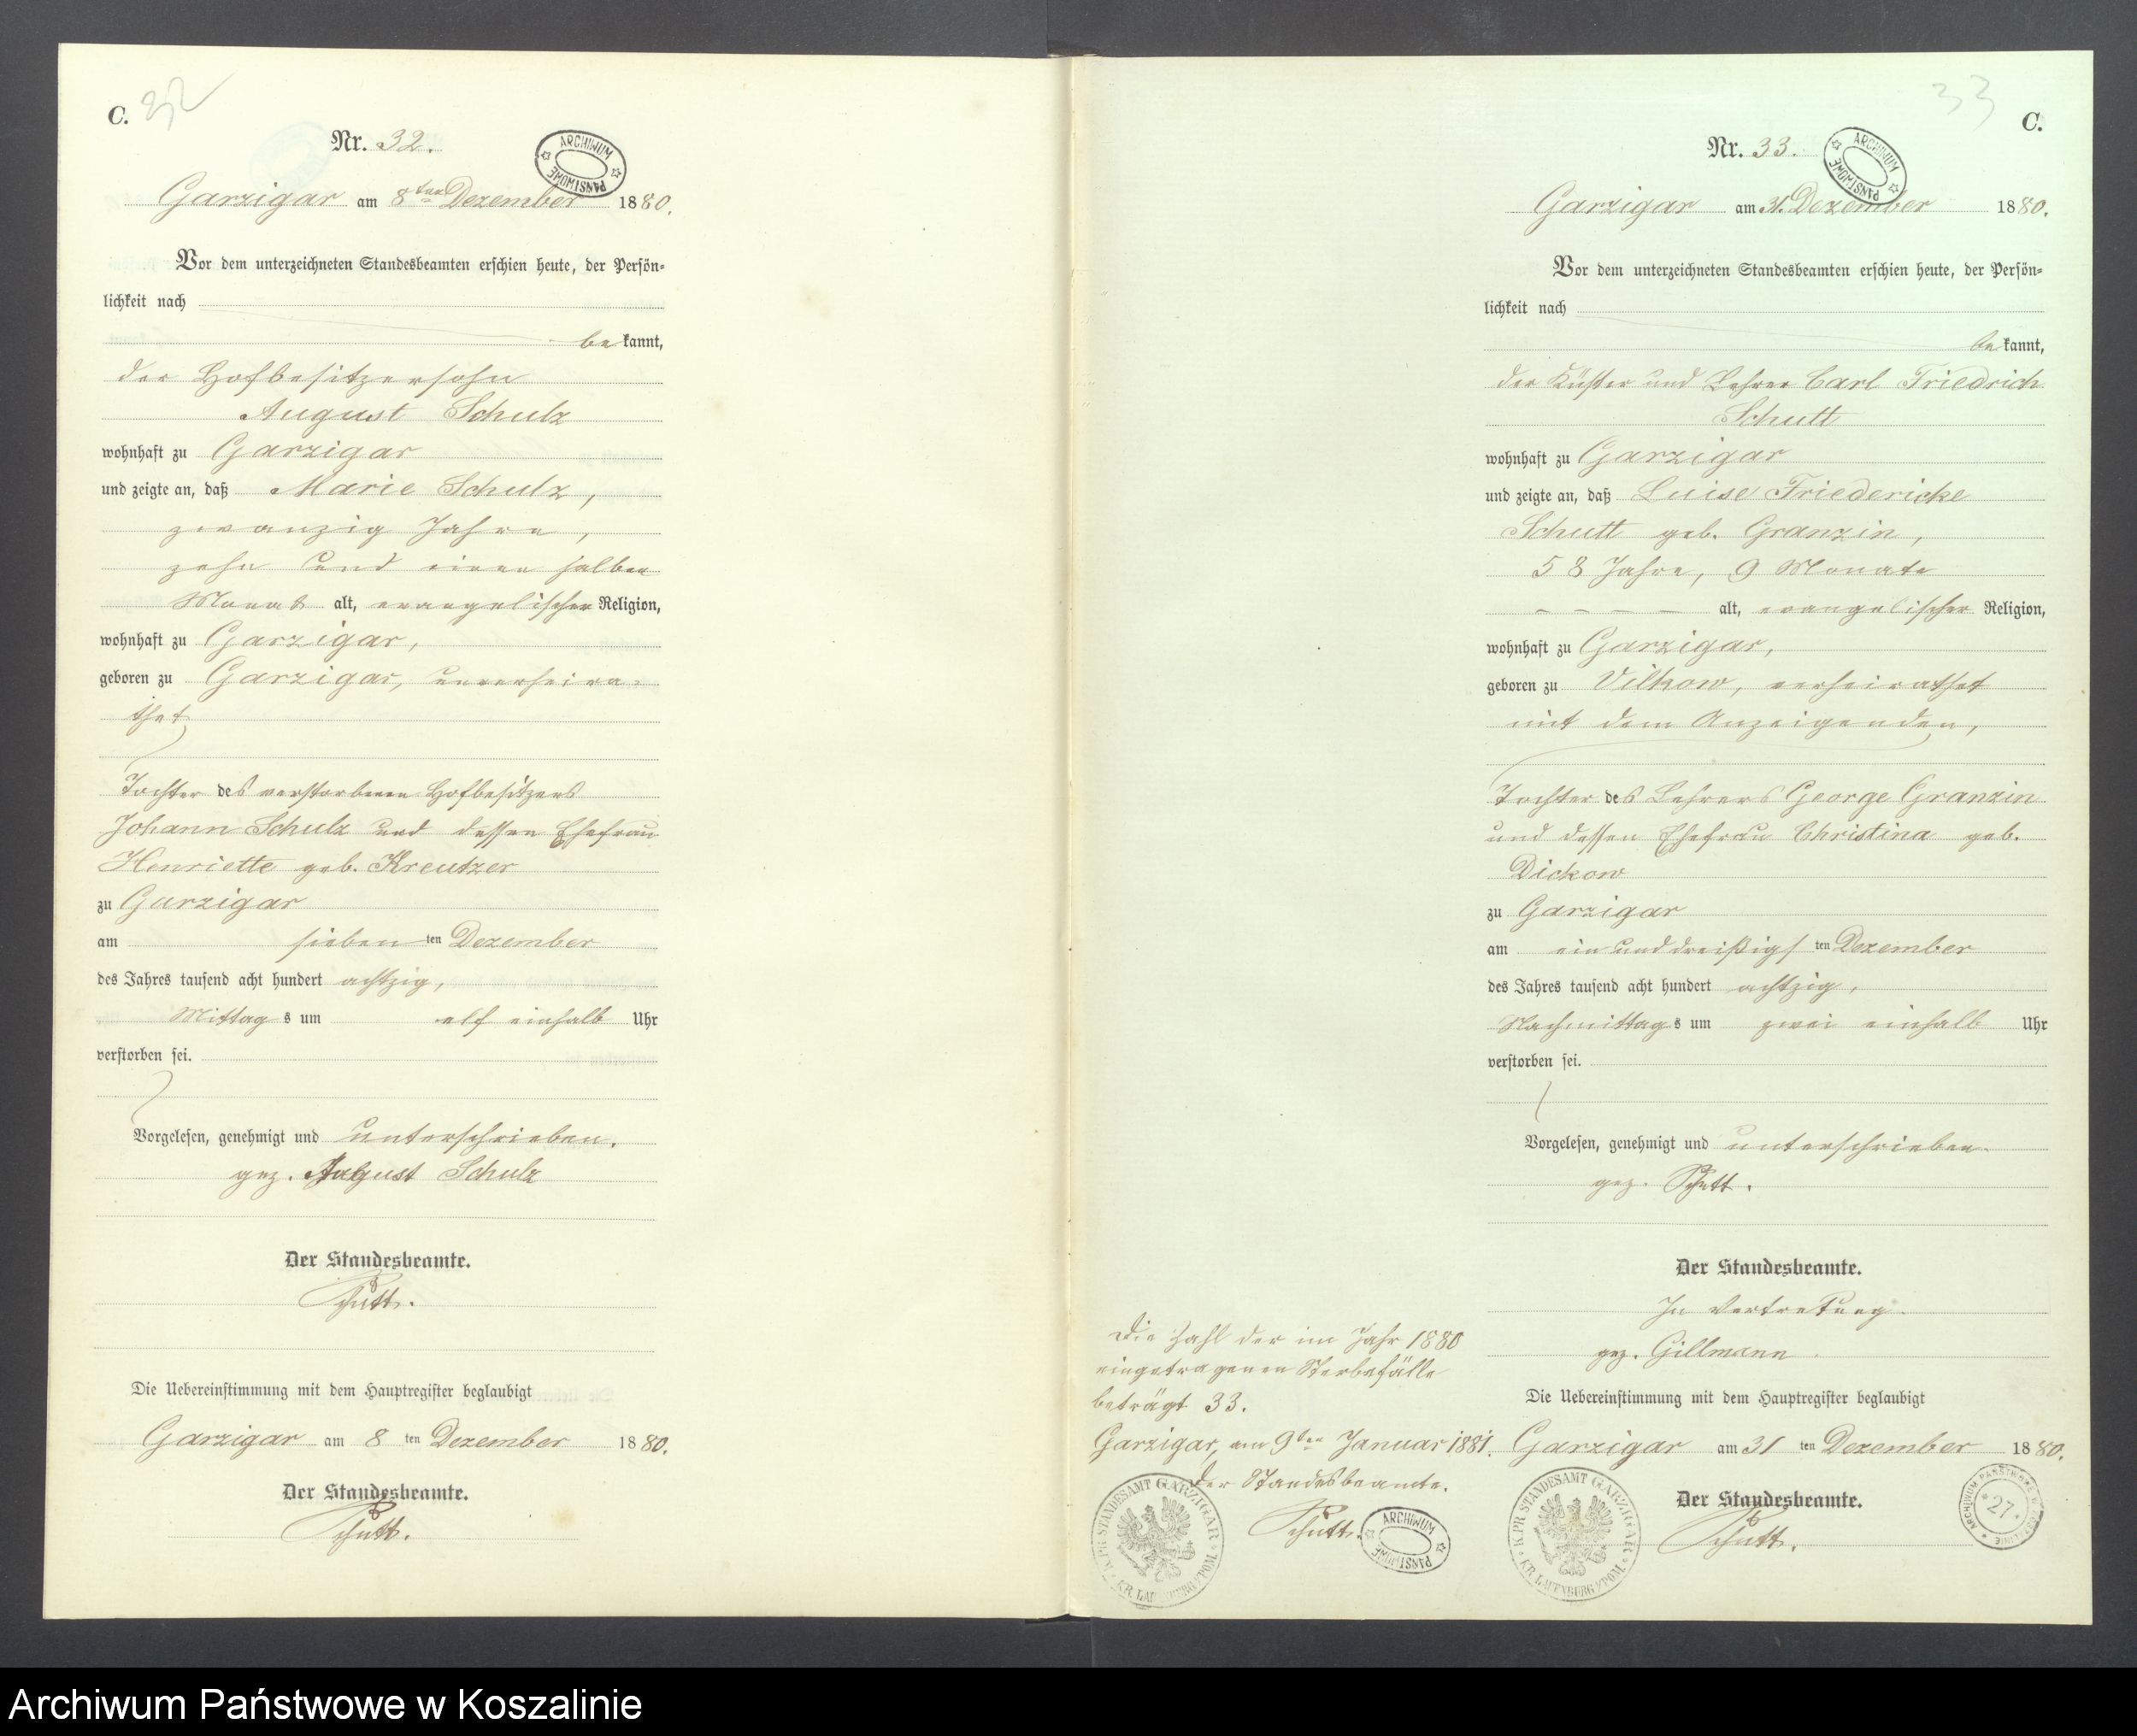 C. 32
Nr. 32.
ARCHIWUM PAŃSTWOWE
Garzigar am 8ten Dezember 1880.
Vor dem unterzeichneten Standesbeamten erschien heute, der Persön-
lichkeit nach
bekannt,
der Hofbesitzersohn
August Schulz
wohnhaft zu Garzigar
und zeigte an, daß Marie Schulz,
zwanzig Jahre,
zehn und einen halben
Monat alt, evangelischer Religion,
wohnhaft zu Garzigar,
geboren zu Garzigar, unverheira-
thet
Tochter des verstorbenen Hofbesitzers
Johann Schulz und dessen Ehefrau
Henriette geb. Kreutzer
zu Garzigar
am sieben ten Dezember
des Jahres tausend acht hundert achtzig,
Mittags um elf einhalb Uhr
verstorben sei.
Vorgelesen, genehmigt und unterschrieben.
gez. August Schulz
Der Standesbeamte.
Schutt.
Die Uebereinstimmung mit dem Hauptregister beglaubigt
Garzigar am 8 ten Dezember 1880.
Der Standesbeamte.
Schutt.
33 C.
Nr. 33.
ARCHIWUM PAŃSTWOWE
Garzigar am 31. Dezember 1880.
Vor dem unterzeichneten Standesbeamten erschien heute, der Persön-
lichkeit nach
bekannt,
der Küster und Lehrer Carl Friedrich
Schutt
wohnhaft zu Garzigar
und zeigte an, daß Luise Friedericke
Schutt geb. Granzin,
58 Jahre, 9 Monate
– – – – alt, evangelischer Religion,
wohnhaft zu Garzigar,
geboren zu Vilkow, verheirathet
mit dem Anzeigenden,
Tochter des Lehrers George Granzin
und dessen Ehefrau Christina geb.
Dickow
zu Garzigar
am ein und dreißigs ten Dezember
des Jahres tausend acht hundert achtzig,
Nachmittags um zwei einhalb Uhr
verstorben sei.
Vorgelesen, genehmigt und unterschrieben.
gez. Schutt.
Der Standesbeamte.
In Vertretung.
gez. Gillmann.
Die Uebereinstimmung mit dem Hauptregister beglaubigt
Garzigar am 31 ten Dezember 1880.
Der Standesbeamte.
Schutt.
K.PR STANDESAMT GARZIGAR
KR. LAUENBURG i/POM.
27
Die Zahl der im Jahr 1880
eingetragenen Sterbefälle
beträgt 33.
Garzigar, am 9ten Januar 1881.
Der Standesbeamte.
Schutt.
K.PR STANDESAMT GARZIGAR
KR. LAUENBURG i/POM.
ARCHIWUM PAŃSTWOWE
Archiwum Państwowe w Koszalinie